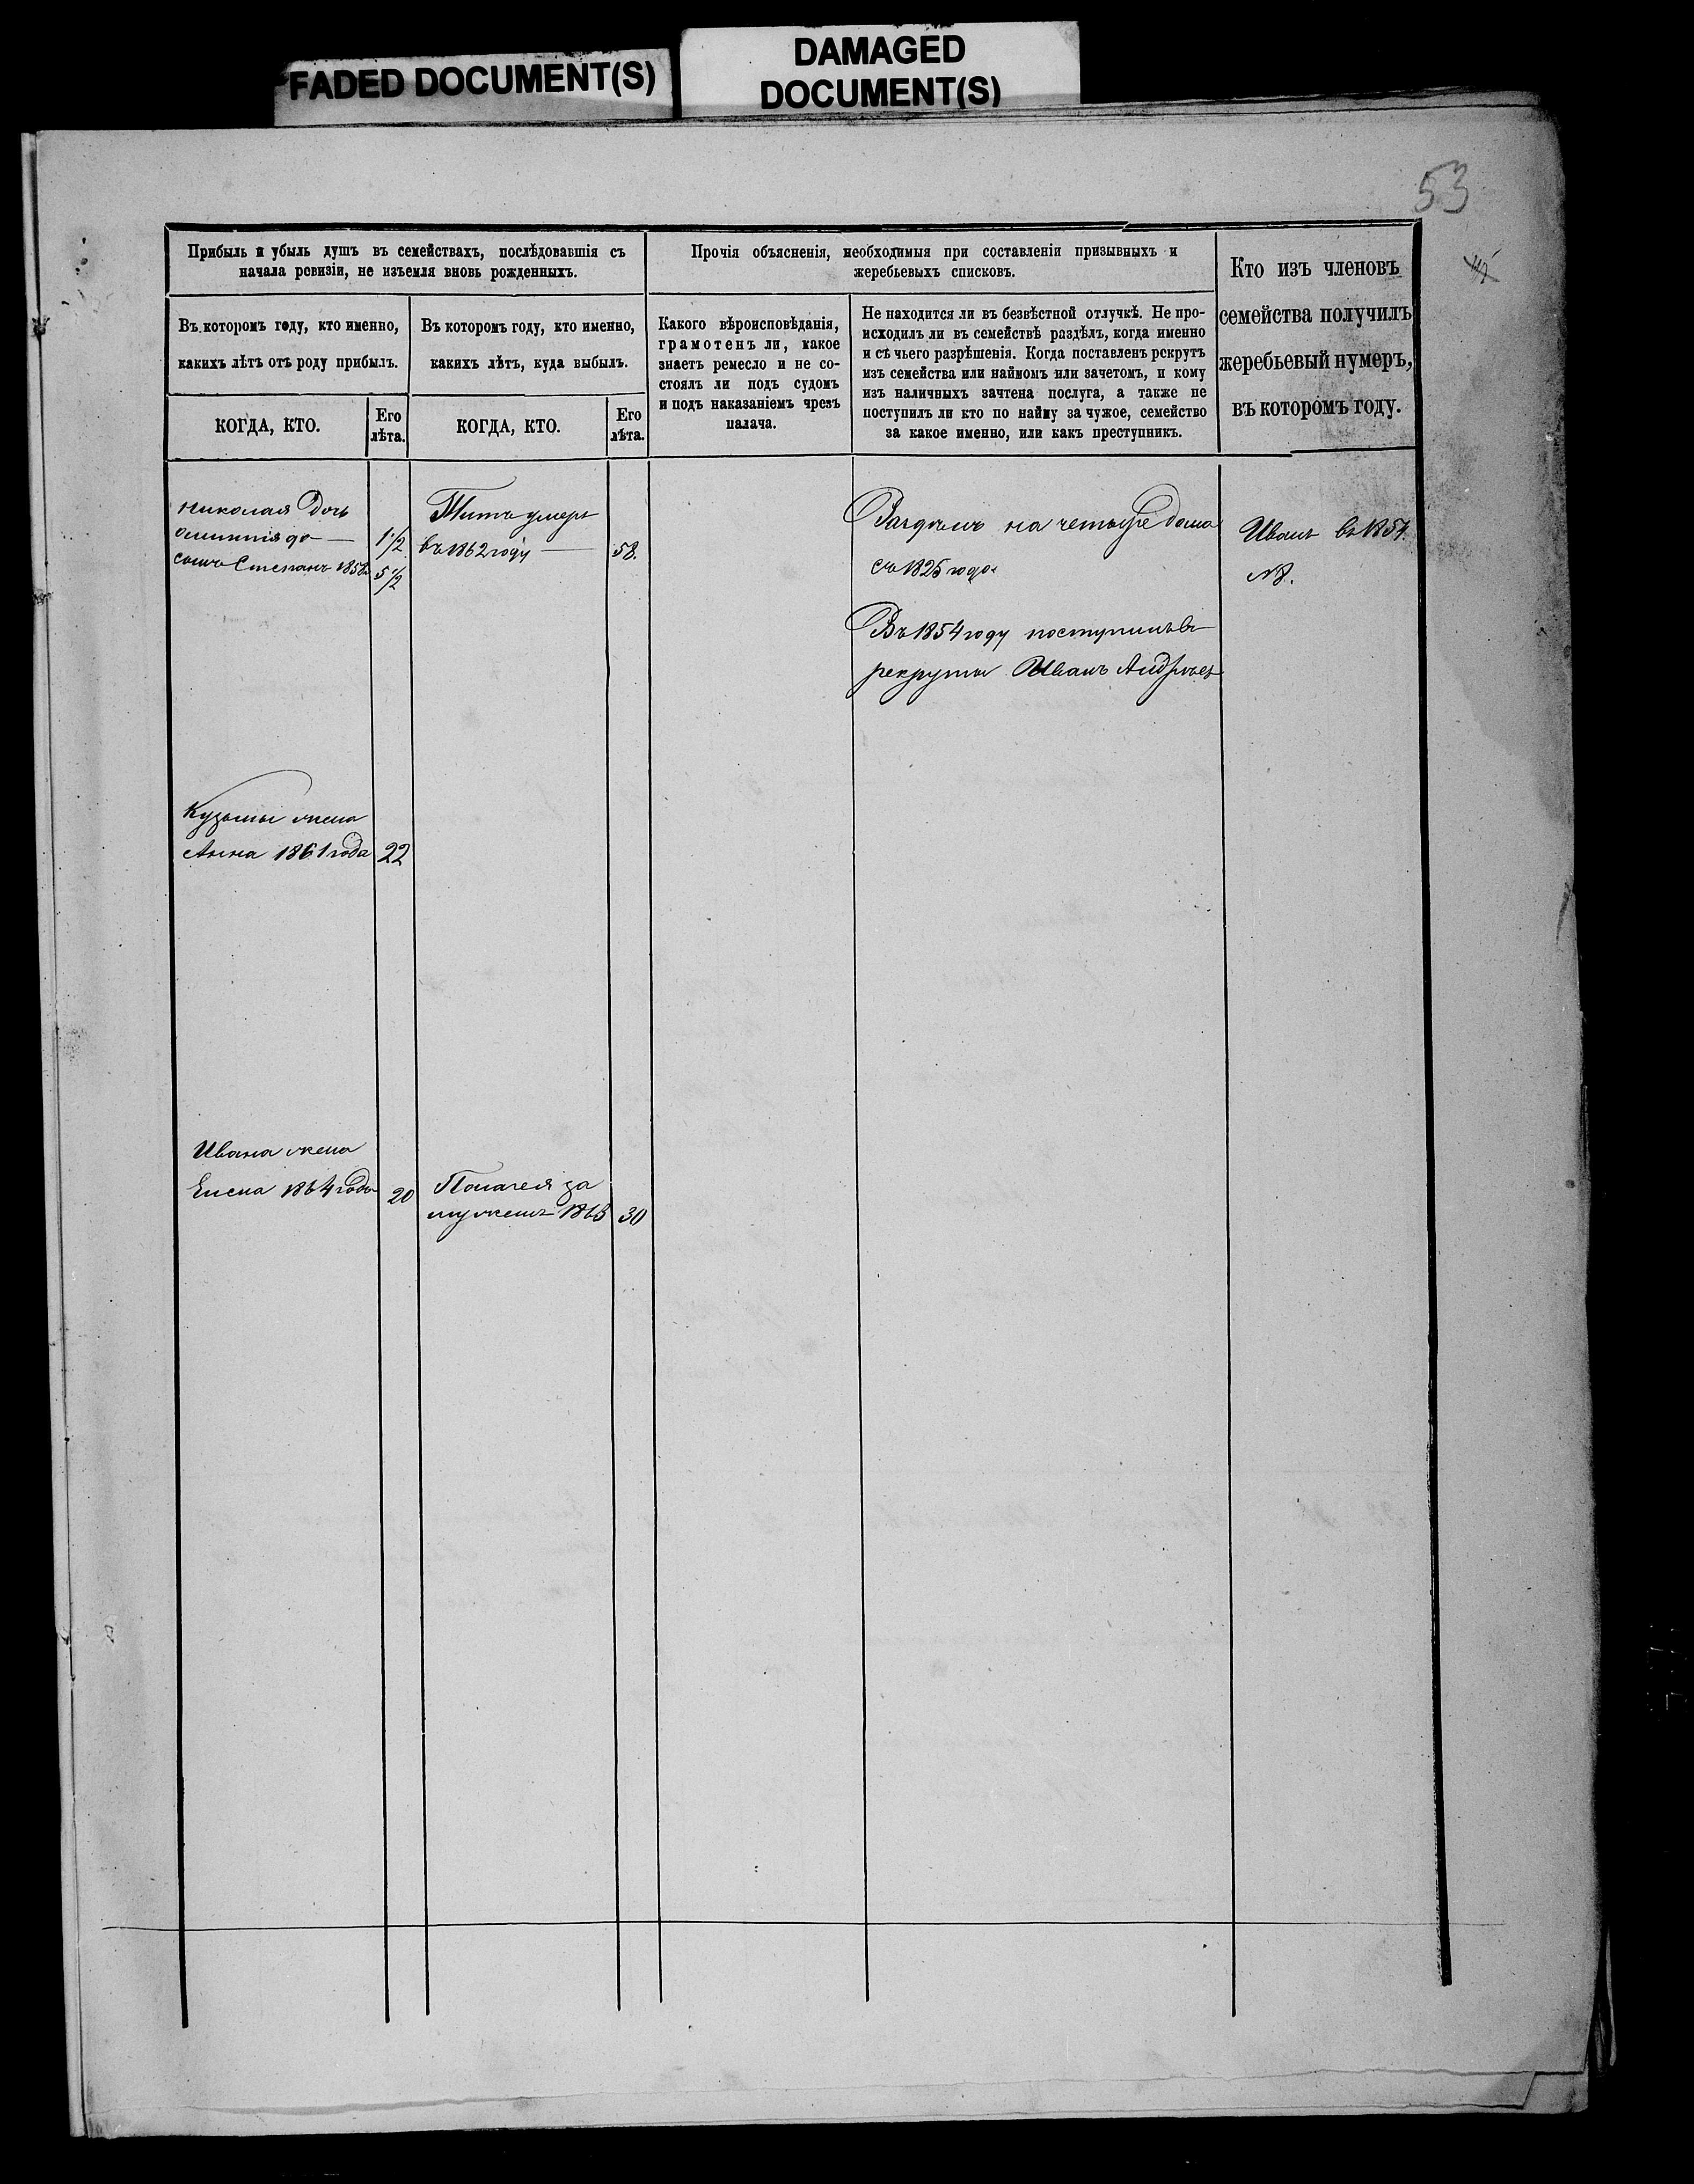 FADED DOCUMENT(S)
DAMAGED
DOCUMENT(S)
53
Прибыль и убыль душъ въ семействахъ, послѣдовавшія съ
начала ревизіи, не изъемля вновь рожденныхъ.
Прочія объясненія, необходимыя при составленіи призывныхъ и
жеребьевыхъ списковъ.
Кто изъ членовъ
семейства получилъ
жеребьевый нумеръ,
въ которомъ году.
Въ которомъ году, кто именно,
какихъ лѣтъ отъ роду прибылъ.
Въ которомъ году, кто именно,
какихъ лѣтъ, куда выбылъ.
Какого вѣроисповѣданія,
грамотенъ ли, какое
знаетъ ремесло и не со-
стоялъ ли подъ судомъ
и подъ наказаніемъ чрезъ
палача.
Не находится ли въ безвѣстной отлучкѣ. Не про-
исходилъ ли въ семействѣ раздѣлъ, когда именно
и съ чьего разрѣшенія. Когда поставленъ рекрутъ
изъ семейства или наймомъ или зачетомъ, и кому
изъ наличныхъ зачтена послуга, а также не
поступилъ ли кто по найму за чужое, семейство
за какое именно, или какъ преступникъ.
КОГДА, КТО.
Его
лѣта.
КОГДА, КТО.
Его
лѣта.
Николая Дочь
1 1/2
сынъ Степанъ 1858
5 1/2
Титъ умеръ
въ 1862 году 58.
Раздѣлъ на четыре дома
съ 1825 года
Въ 1854 году поступилъ въ
рекруты Иванъ Андрѣев
Иванъ въ 1854
№ 8.
Кузьмы жена
Анна 1861 года 22
Ивана жена
Елена 1864 года 20
Пелагея за
мужемъ 1863 30